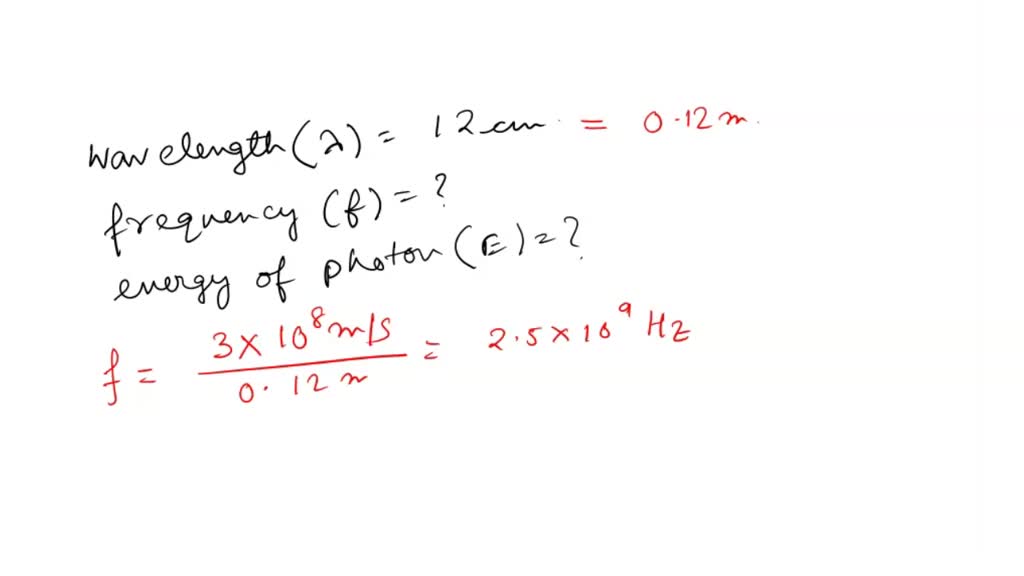 wavelength (λ) = 12 cm = 0.12 m.
frequency (f) = ?
energy of photon (E) = ?
f = 3 × 10⁸ m/s / 0.12 m = 2.5 × 10⁹ Hz